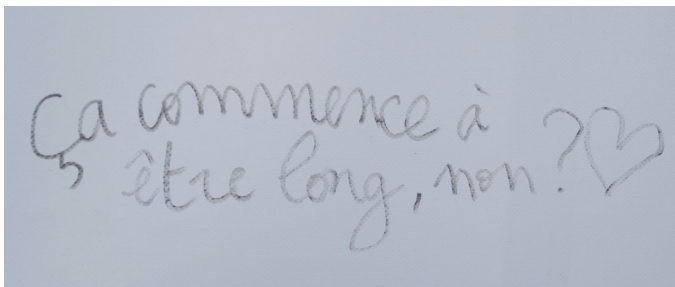 Ça commence à
être long, non ? ♡